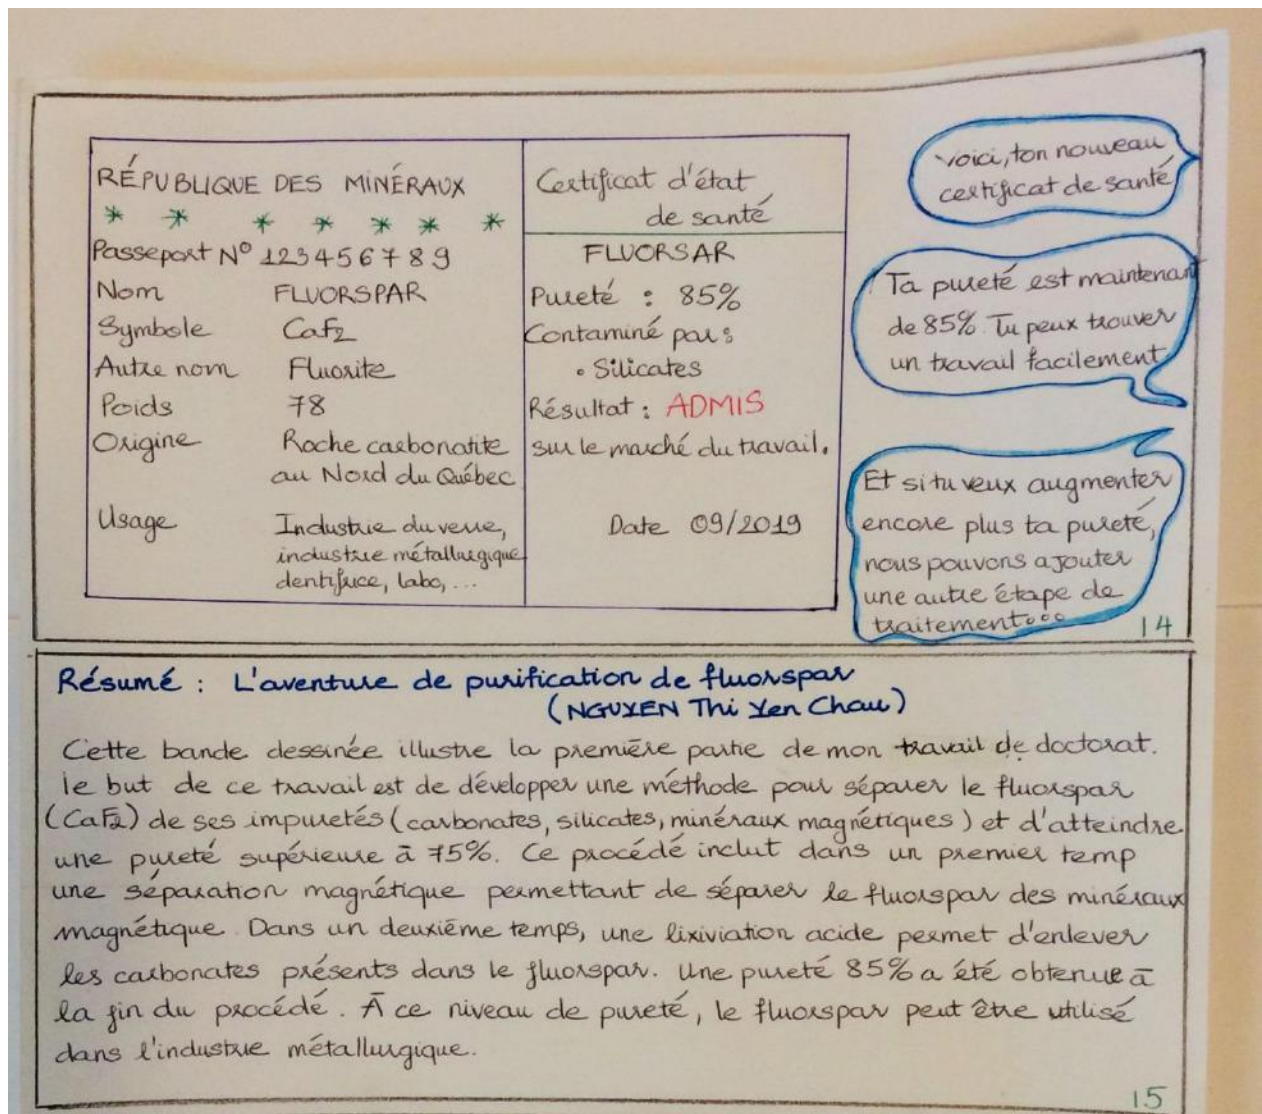 RÉPUBLIQUE DES MINÉRAUX
* * * * * * *
Passeport N° 123456789
Nom FLUORSPAR
Symbole CaF2
Autre nom Fluorite
Poids 78
Origine Roche carbonatite
au Nord du Québec
Usage Industrie du verre,
industrie métallurgique
dentifrice, labo, ...
Certificat d'état
de santé
FLUORSAR
Pureté : 85%
Contaminé par :
• Silicates
Résultat : ADMIS
sur le marché du travail.
Date 09/2019
Voici, ton nouveau
certificat de santé
Ta pureté est maintenant
de 85%. Tu peux trouver
un travail facilement
Et si tu veux augmenter
encore plus ta pureté,
nous pouvons ajouter
une autre étape de
traitement...
14
Résumé : L'aventure de purification de fluorspar
(NGUYEN Thi Yen Chau)
Cette bande dessinée illustre la première partie de mon travail de doctorat.
le but de ce travail est de développer une méthode pour séparer le fluorspar
(CaF2) de ses impuretés (carbonates, silicates, minéraux magnétiques) et d'atteindre
une pureté supérieure à 75%. Ce procédé inclut dans un premier temp
une séparation magnétique permettant de séparer le fluorspar des minéraux
magnétique. Dans un deuxième temps, une lixiviation acide permet d'enlever
les carbonates présents dans le fluorspar. Une pureté 85% a été obtenue à
la fin du procédé. À ce niveau de pureté, le fluorspar peut être utilisé
dans l'industrie métallurgique.
15